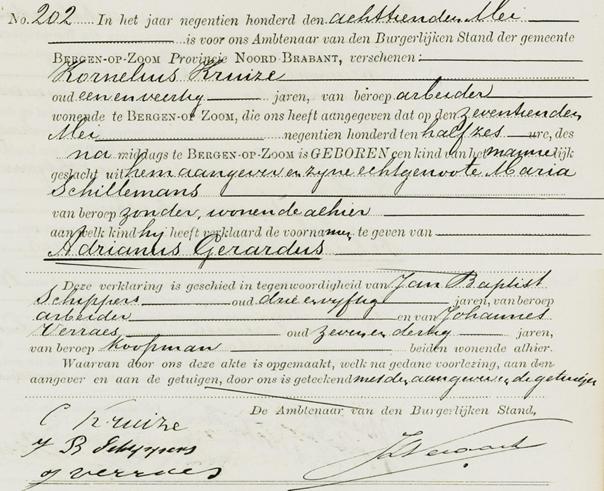 No. 202 In het jaar negentien honderd den achttienden Mei
is voor ons Ambtenaar van den Burgerlijken Stand der gemeente
BERGEN-OP-ZOOM Provincie NOORD-BRABANT, verschenen:
Kornelius Kruize
oud een en veertig jaren, van beroep arbeider
wonende te BERGEN-OP-ZOOM, die ons heeft aangegeven dat op den zeventienden
Mei negentien honderd ten half zes ure, des
na middags te BERGEN-OP-ZOOM is GEBOREN een kind van het mannelijk
geslacht uit hem aangever en zyne echtgenoote Maria
Schillemans
van beroep zonder, wonende alhier
aan welk kind hij heeft verklaard de voornamen te geven van
Adrianus Gerardus
Deze verklaring is geschied in tegenwoordigheid van Jan Baptist
Schippers oud drie en vyftig jaren, van beroep
arbeider en van Johannes
Verraes oud zeven en dertig jaren,
van beroep koopman beiden wonende alhier.
Waarvan door ons deze akte is opgemaakt, welk na gedane voorlezing, aan den
aangever en aan de getuigen, door ons is geteekend met den aangever en de getuigen
De Ambtenaar van den Burgerlijken Stand,
C Kruize
J B Schippers
J Verraes